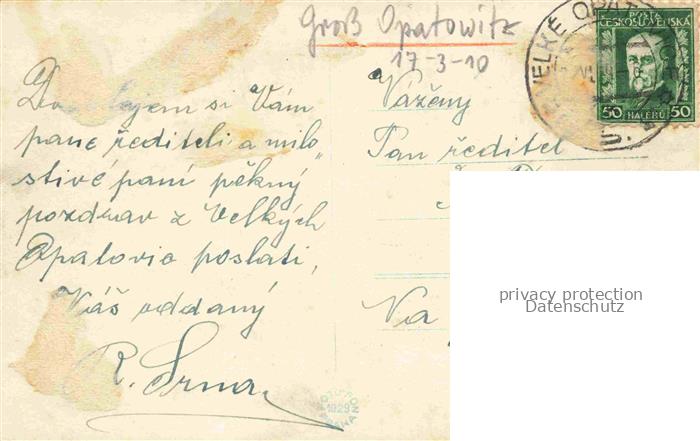 Groß Opatowitz
17-3-10
Dovolujem si Vám
pane řediteli a milo„
stivé paní pěkný
pozdrav z Velkých
Opatovic poslati,
Váš oddaný
R. Srna
Vážený
Pan ředitel
Na
VELKÉ OPAT
POŠTA
ČESKOSLOVENSKÁ
50 HALÉŘŮ 50
1929
privacy protection
Datenschutz